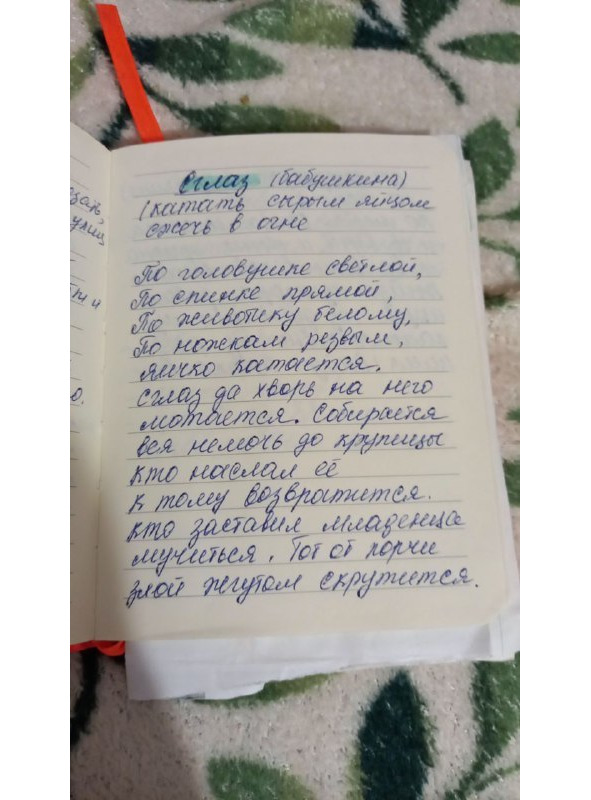 Сглаз (бабушкина)
(катать сырым яйцом
сжечь в огне
По головушке светлой,
По спинке прямой,
По животику белому,
По ножкам резвым,
яичко катается.
Сглаз да хворь на него
мотается. Собирается
вся немочь до крупицы
Кто наслал её
к тому возвратится.
Кто заставил младенца
мучиться. Тот от порчи
злой жгутом скрутится.